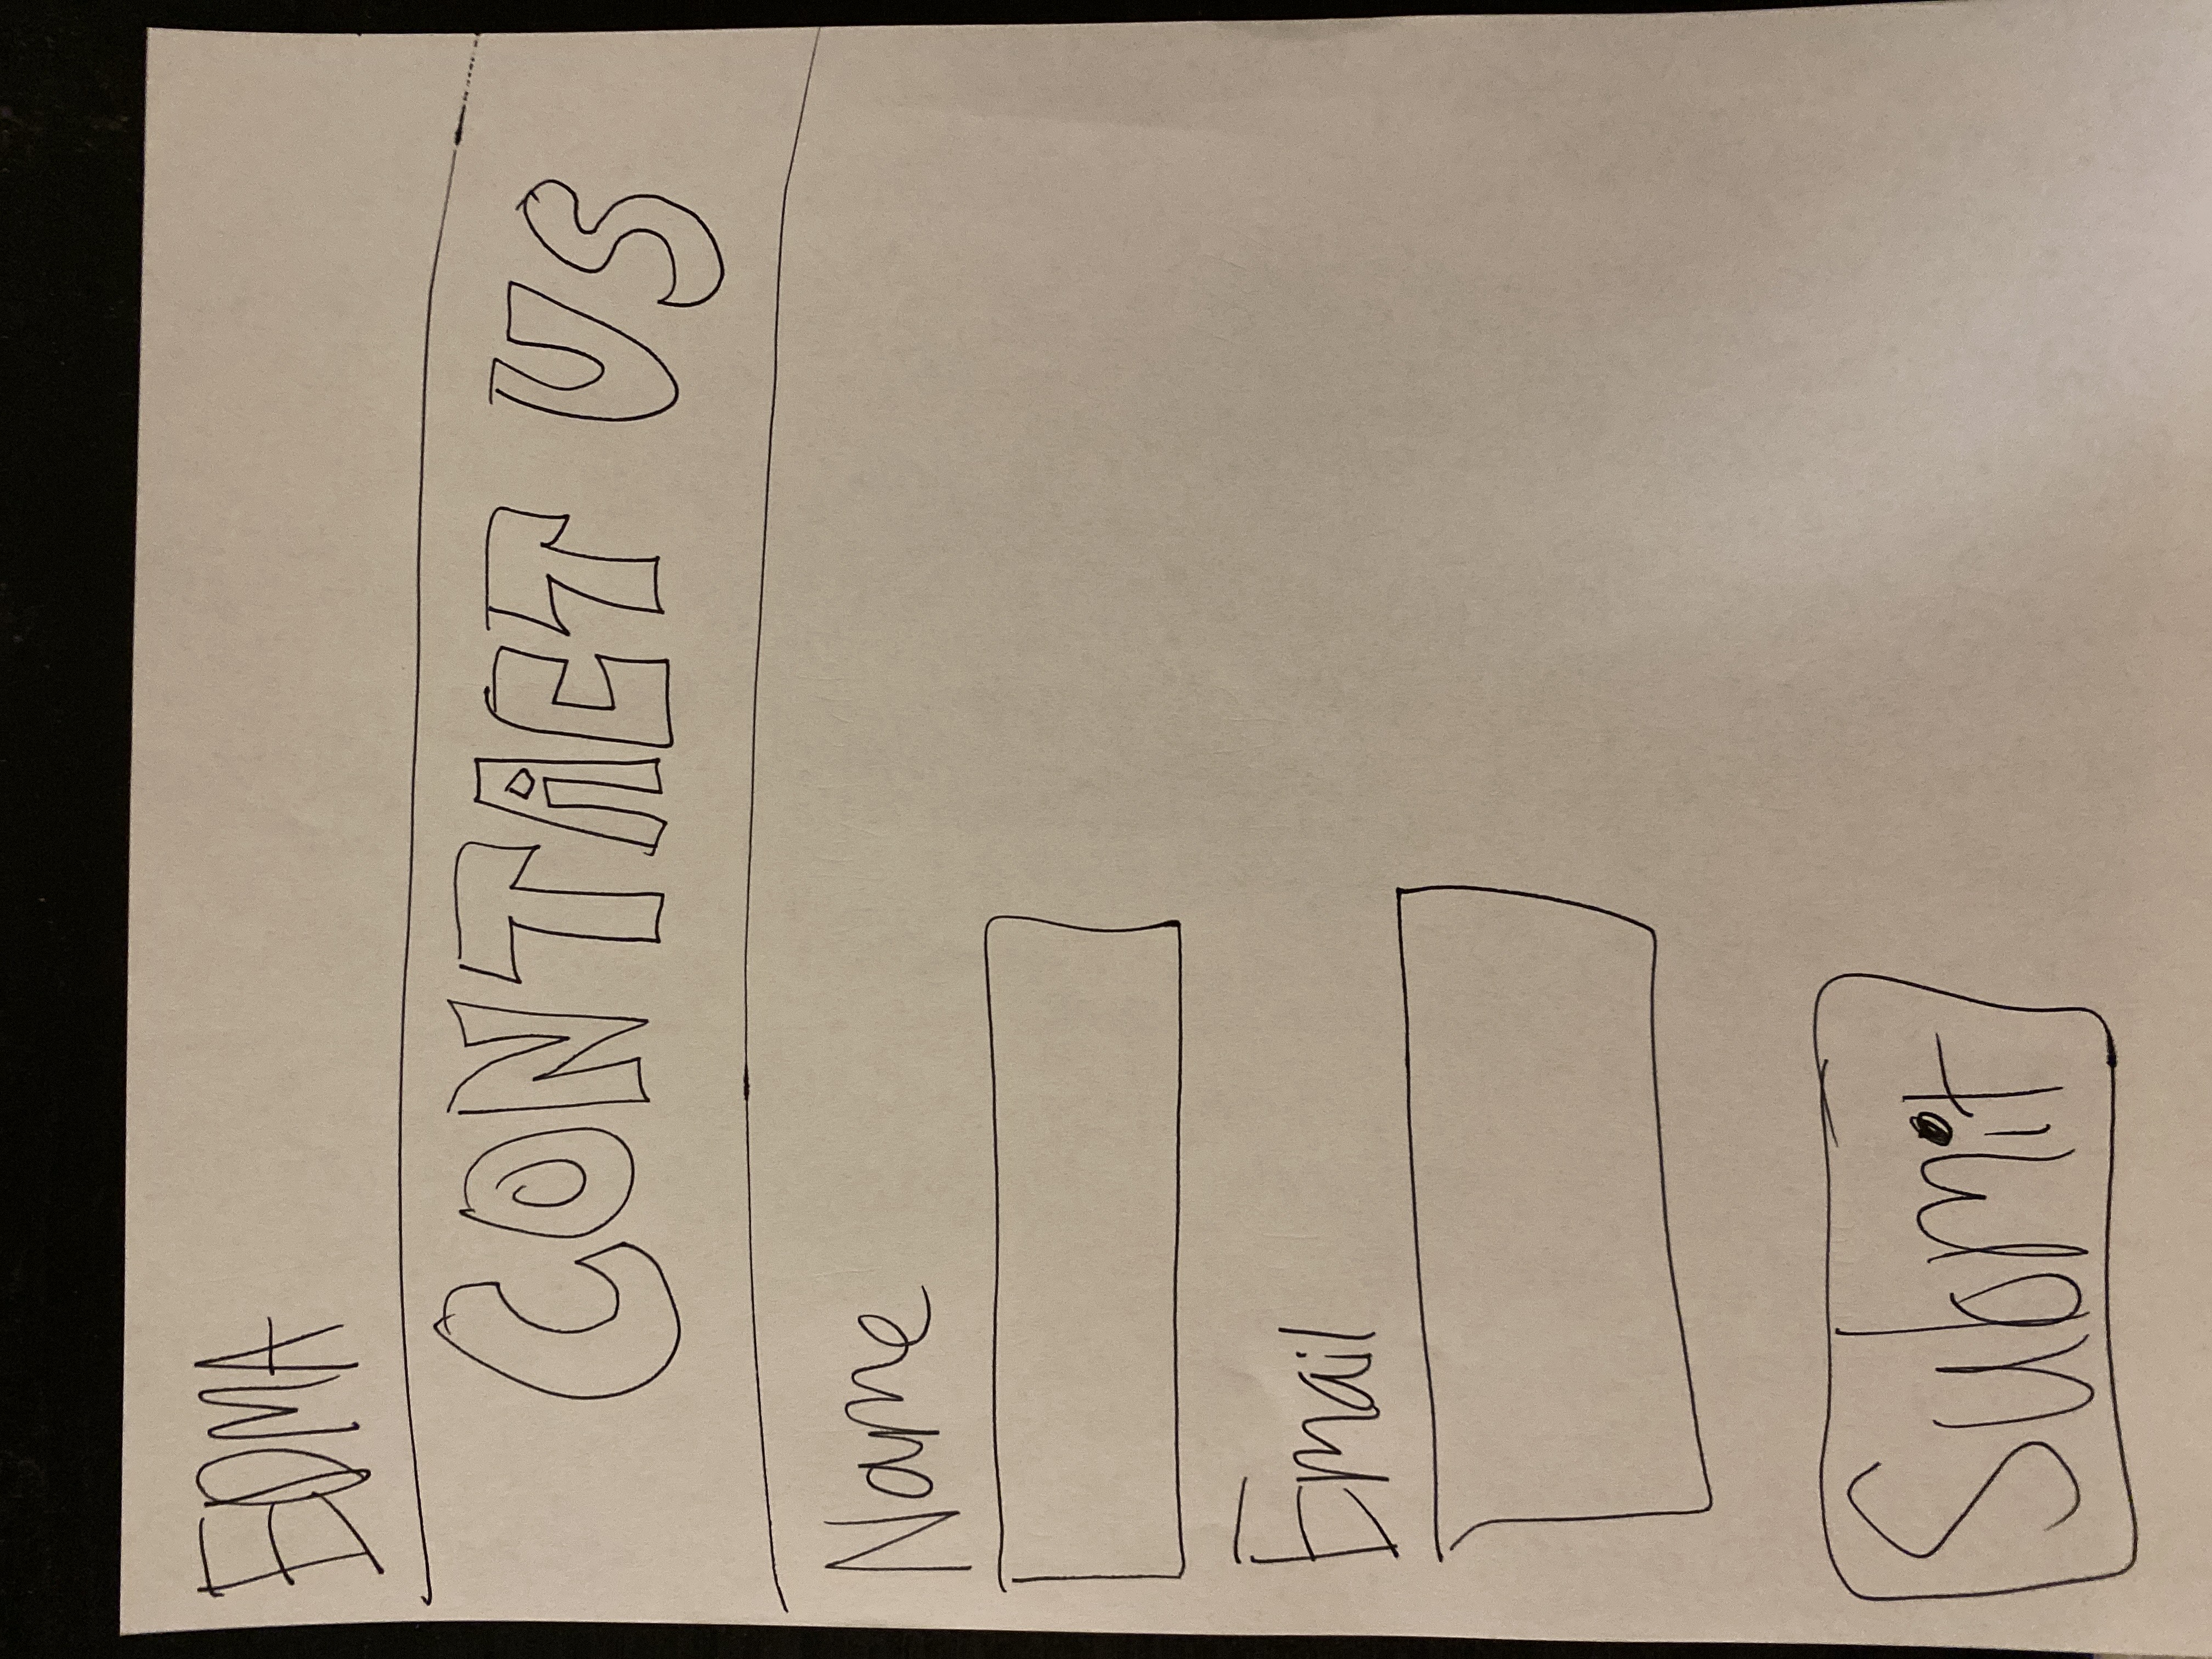 EDMA
CONTACT US
Name
Email
Submit